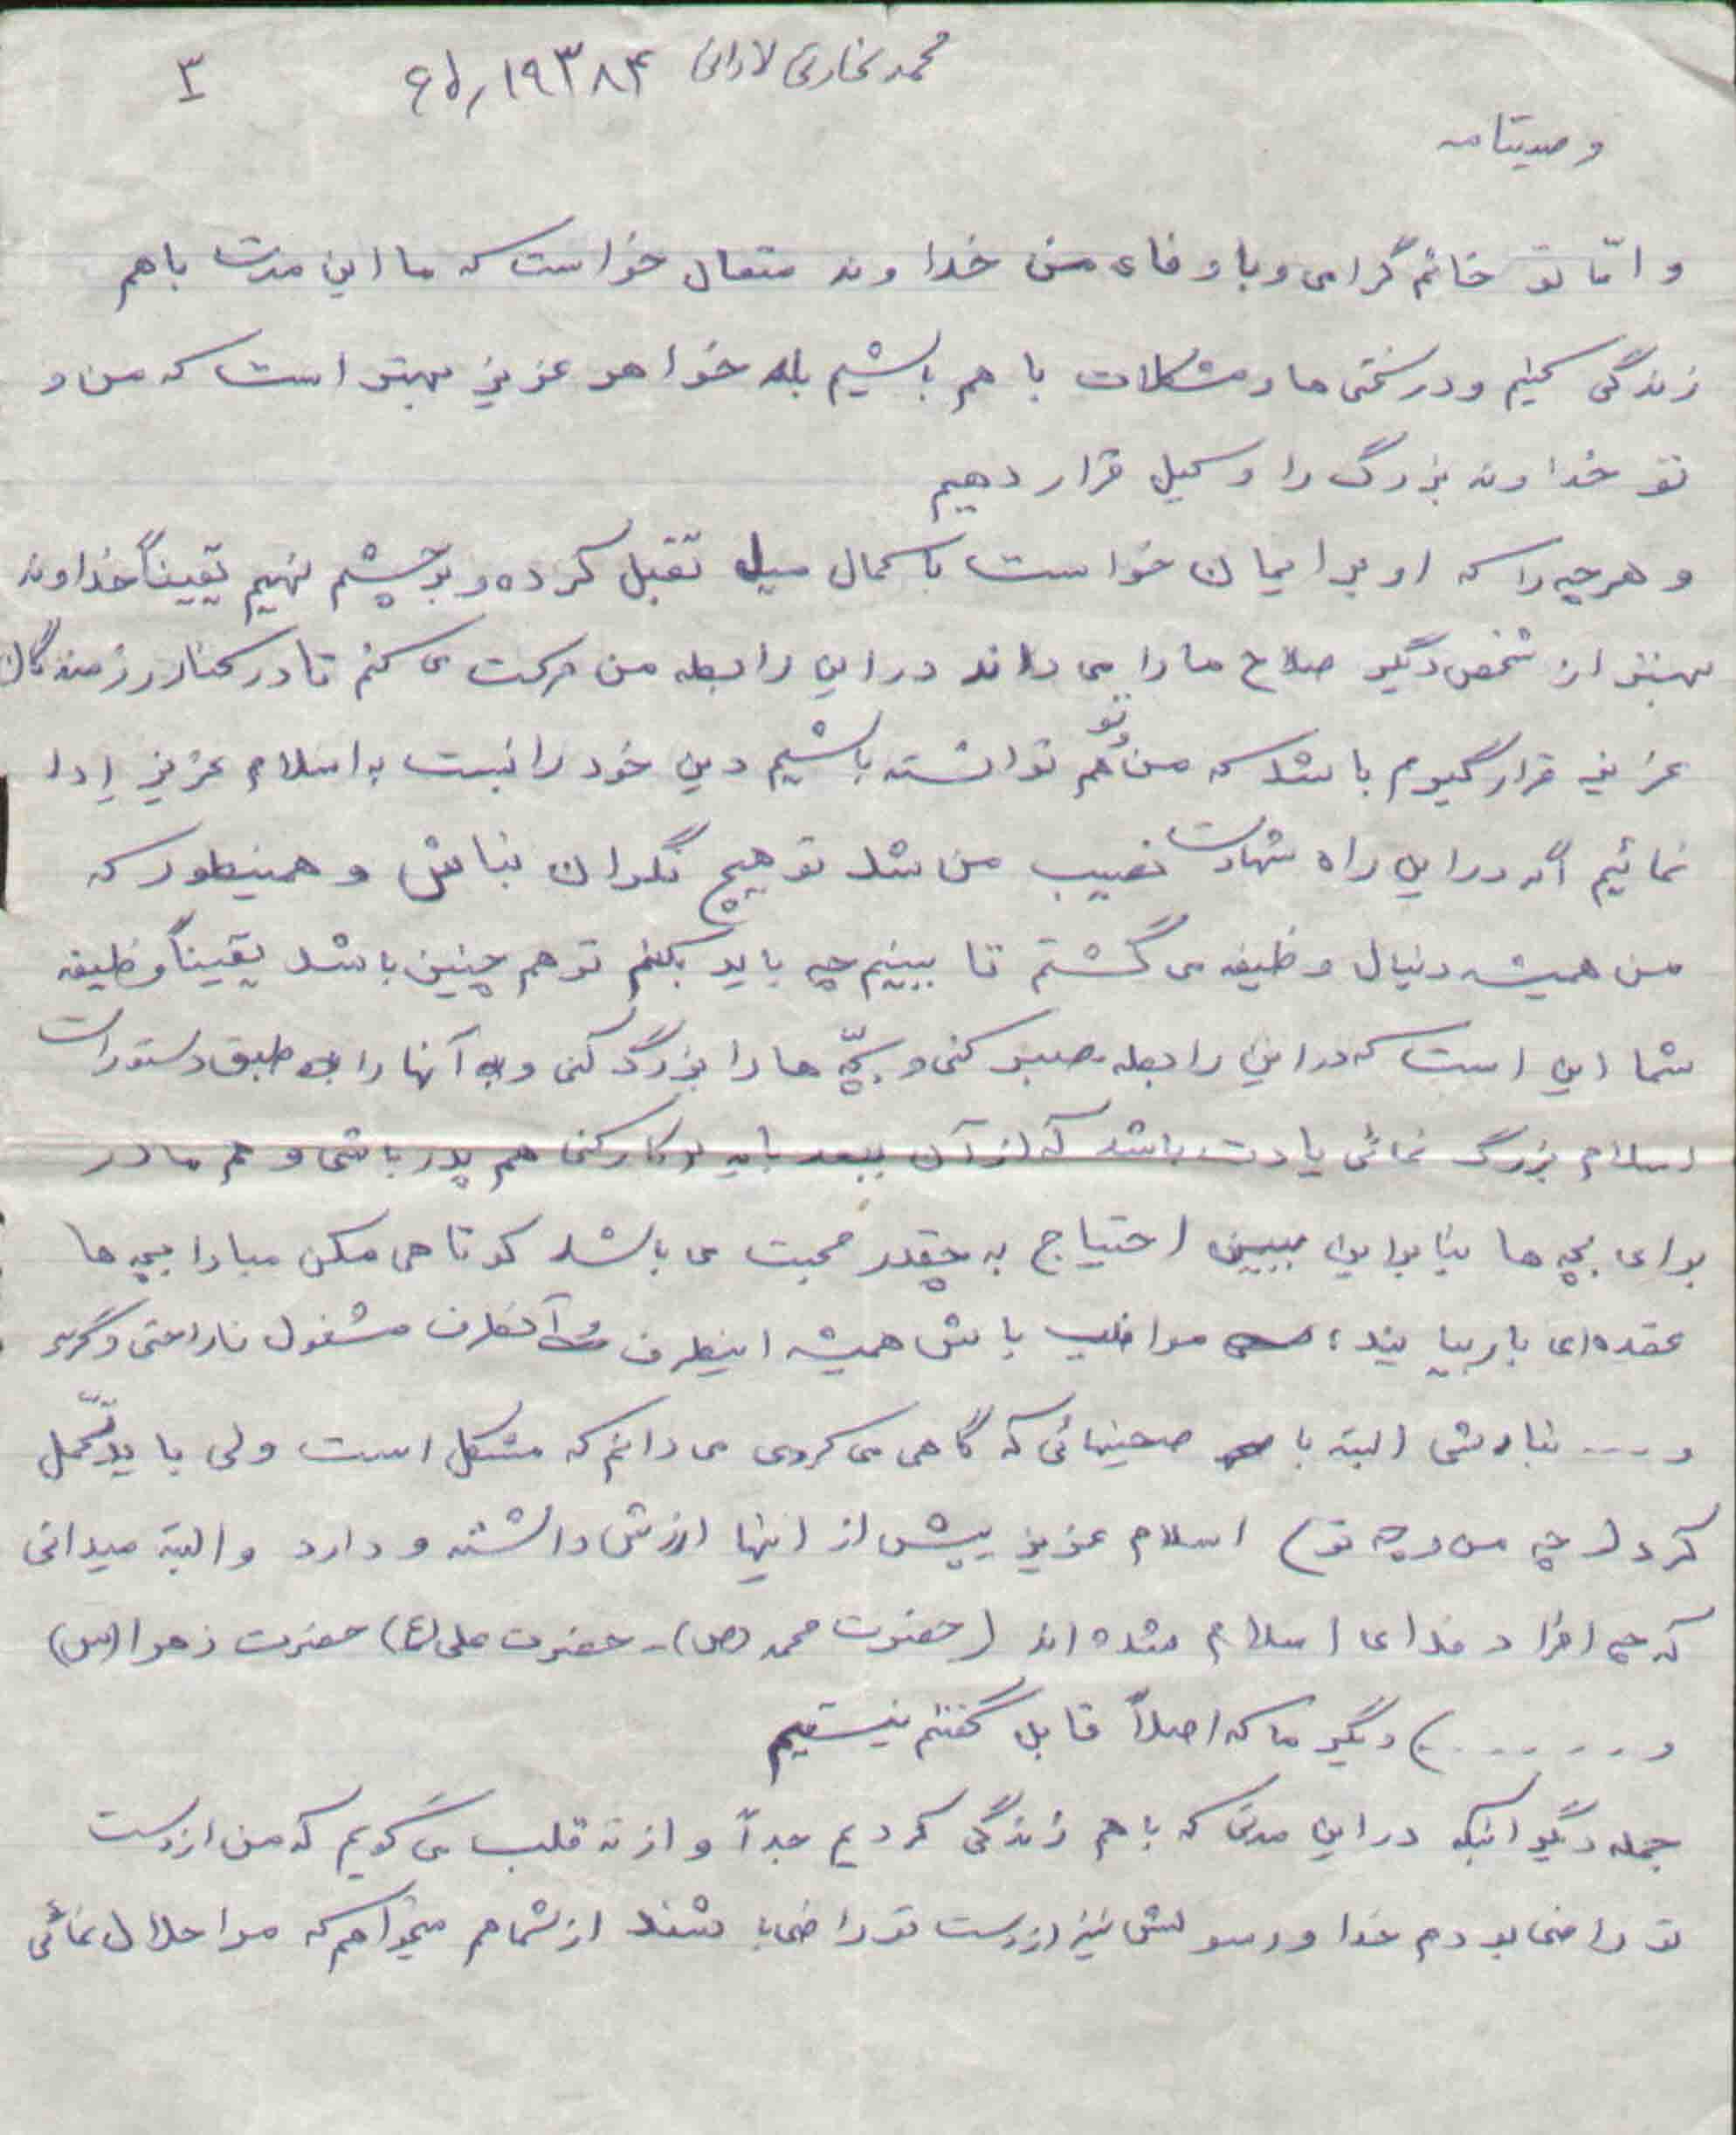 محمد بخارتی لادانی ۶۵٫۱۹۳۸۴ ۳
وصیتنامه
و امّا تو خانم گرامی و با وفای من خداوند متعال خواست که ما این مدت باهم
زندگی کنیم و در سختی ها و مشکلات با هم باشیم بله خواهر عزیز بهتر است که من و
تو خداوند بزرگ را وکیل قرار دهیم
و هرچه را که او برایمان خواست با کمال میل تقبل کرده و بر چشم نهیم یقیناً خداوند
بهتر از شخص دیگر صلاح ما را می داند در این رابطه من حرکت می کنم تا در کنار رزمندگان
عزیز قرار گیرم باشد که من و تو هم توانسته باشیم دین خود را نسبت به اسلام عزیز ادا
نمائیم اگر در این راه شهادت نصیب من شد تو هیچ نگران نباش و همینطور که
من همیشه دنبال وظیفه می گشتم تا ببینم چه باید بکنم تو هم چنین باشد یقیناً وظیفه
شما این است که در این رابطه صبر کنی و بچّه ها را بزرگ کنی و آنها را به طبق دستورات
اسلام بزرگ نمائی یادت باشد که از آن ببعد باید دو کار کنی هم پدر باشی و هم مادر
برای بچه ها بنابراین ببین احتیاج به چقدر محبت می باشد کوتاهی مکن مبادا بچه ها
عقده ای بار بیایند، مواظب باش همیشه اینطرف و آنطرف مشغول ناراحتی و گریه
و ---- نباشی البته با صحنهائی که گاهی می کردی می دانم که مشکل است ولی باید تحّمل
کرد (چه من و چه تو) اسلام عزیز بیش از اینها ارزش داشته و دارد و البته میدانی
که چه افراد فدای اسلام شده اند (حضرت محمد (ص) - حضرت علی (ع) حضرت زهرا (س)
و ........) دیگر ما که اصلاً قابل گفتم نیستیم
جمله دیگر اینکه در این مدتی که با هم زندگی کردیم جداً و از ته قلب می گویم که من از دست
تو راضی بودم خدا و رسولش نیز از دست تو راضی باشند از شما هم میخواهم که مرا حلال نمائی